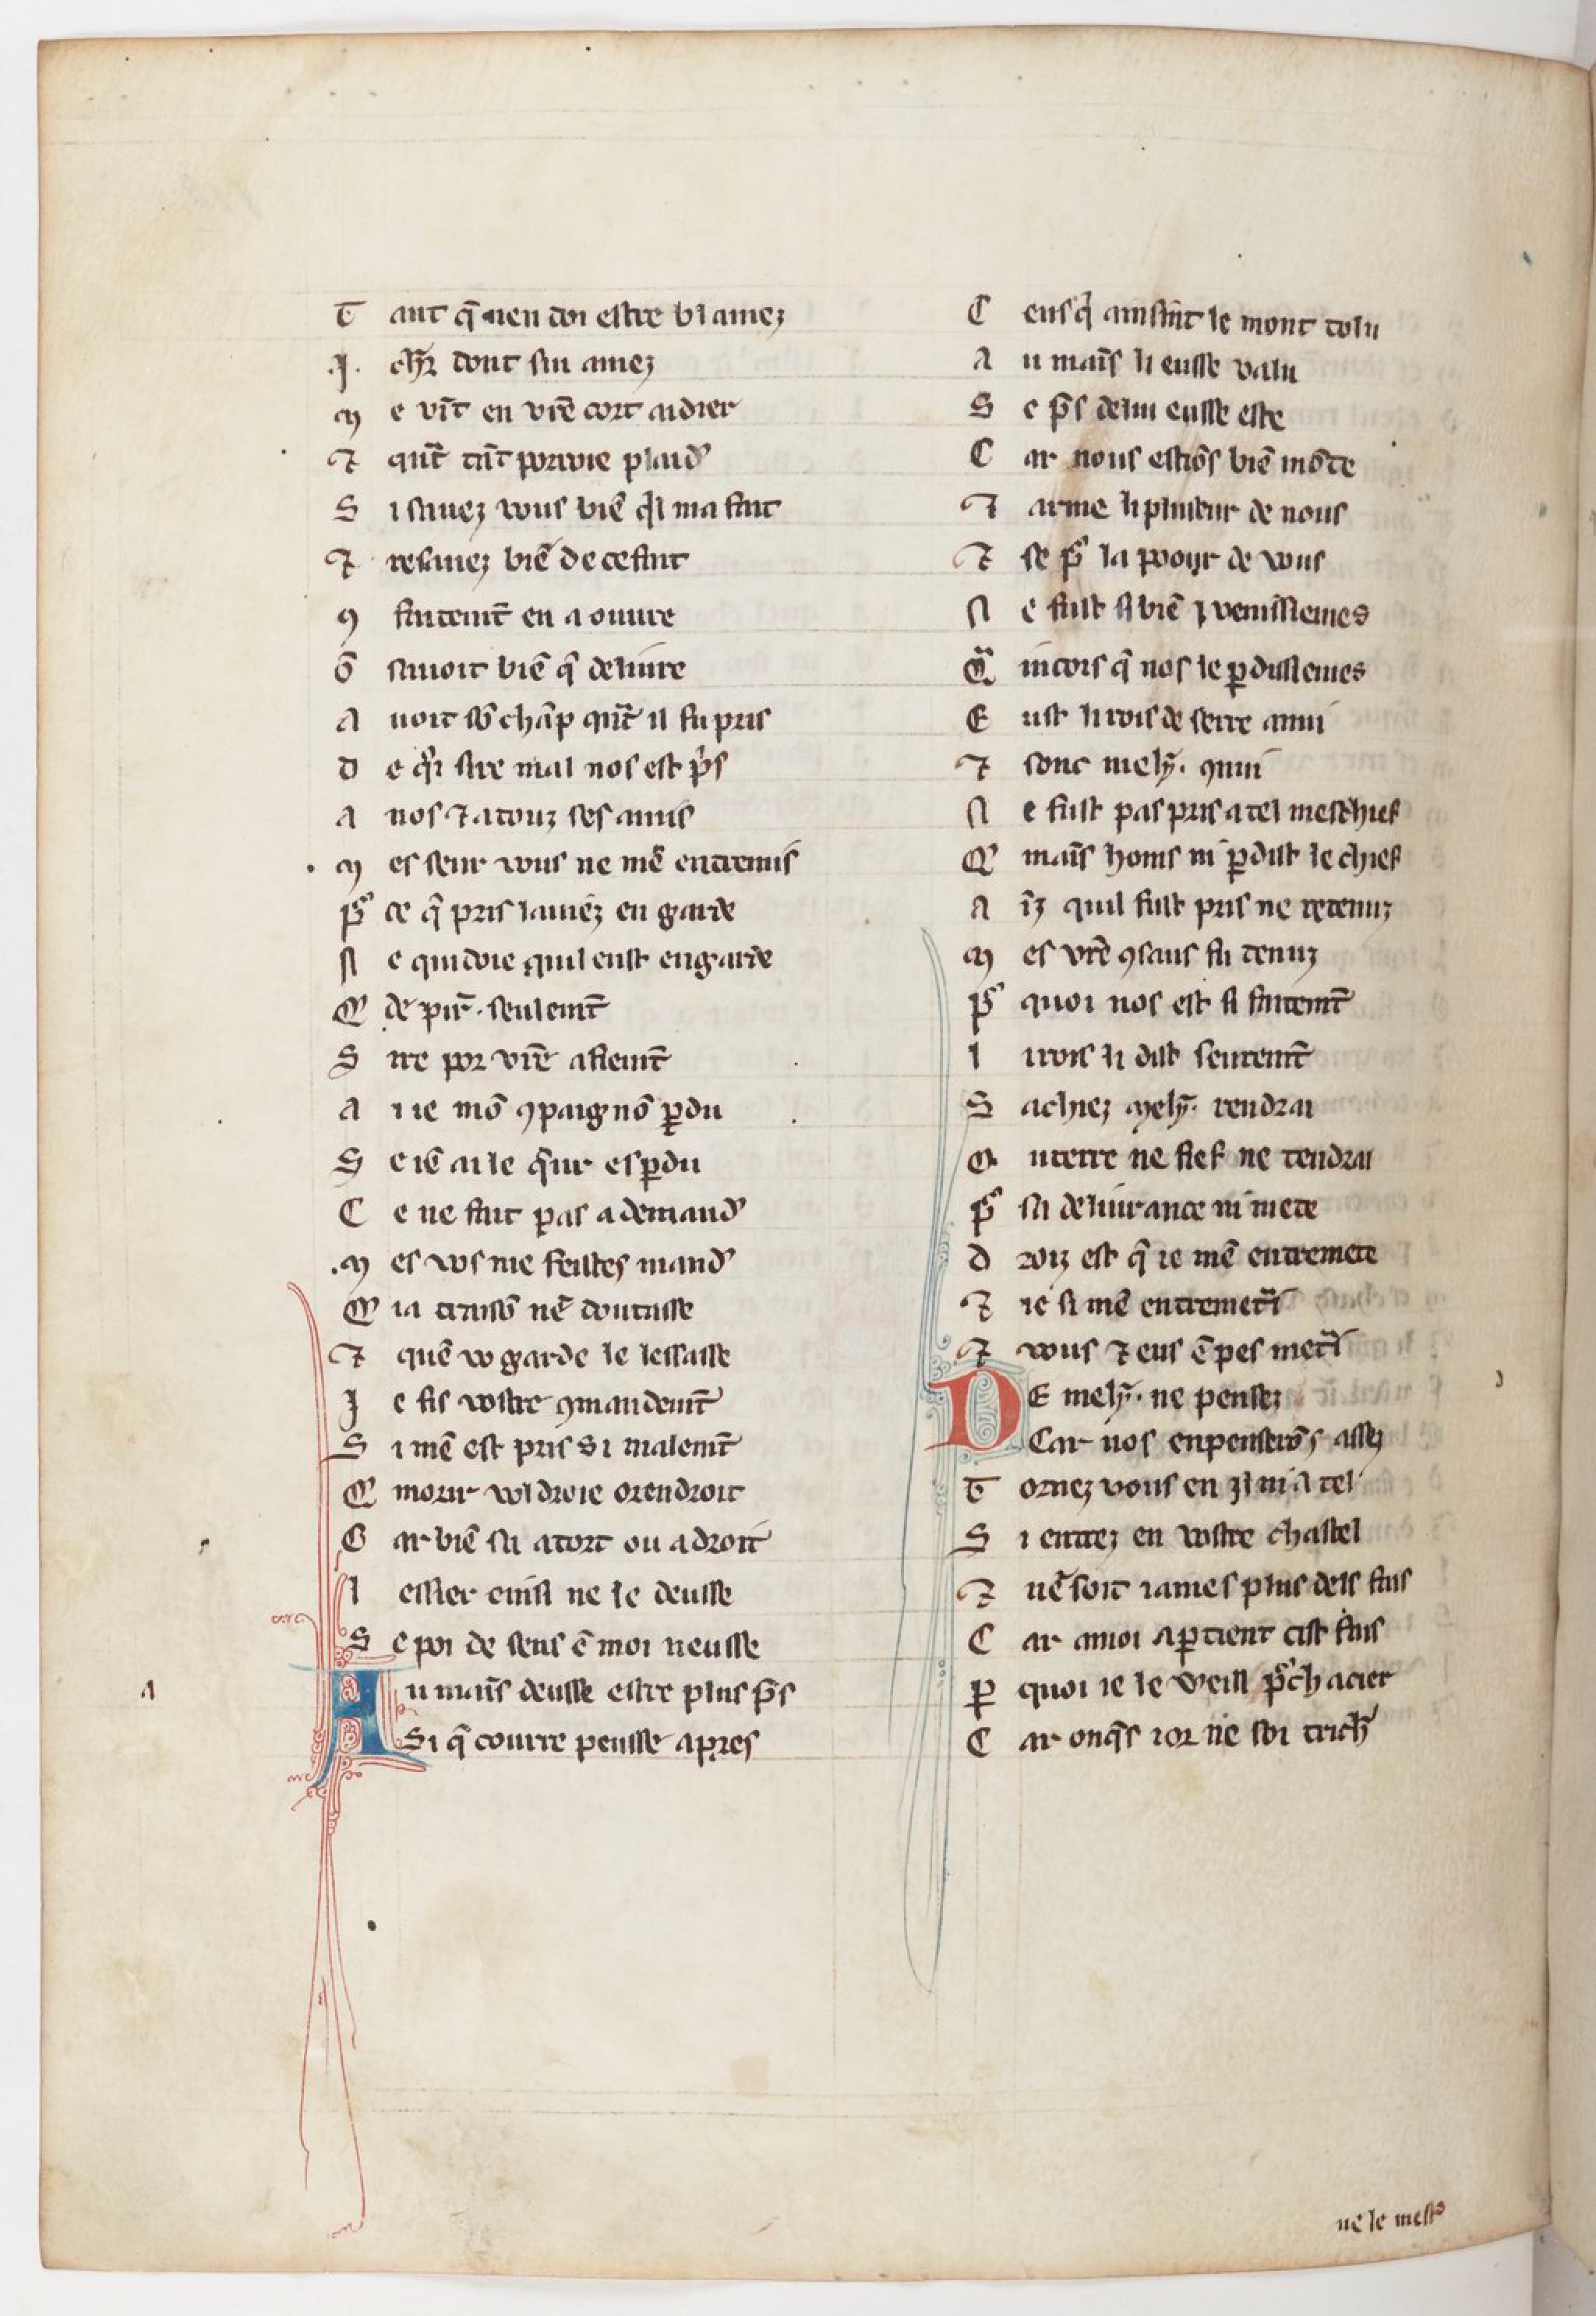 T aut q̃ nen doi estre blamez
.I. chr̃ dont sui amez
M e vīt en vr̃e cort aidier
⁊ qñt tāt porroie plaid'
S i sauez vous biē q̃l ma fait
⁊ resauez biē de cefait
ꝯ faitemt̃ en a ouure
ō sauoit biē q̃ deliure
A uoit sō chāp qñt il fu pris
D e q̃i sire mal nos est p̃s
A nos ⁊ a touz ses amis
M es seur vous ne mē entremis
P̃ ce q̃ pris lauiez en garde
N e quidoie quil eust engarde
Q̃ de pir̃. seulemt̃
S ire por vr̃e afiemt̃
A i ie mō ꝯpaignō ꝑdu
S e iē ai le q̃ur esꝑdu
C e ne fait pas a demand'
M es vos me feistes mand'
Q̃ ia traisō nē doutasse
⁊ quē vo garde le lessasse
J e fis vostre ꝯmandemt̃
S i mē est pris si malemt̃
Q̃ morir voldroie orendroit
C ar biē sai a tort ou a droit
L essier einsi ne le deusse
S e poi de sens ē moi neusse
A u mais̃ deusse estre plus p̃s
Si q̃ courre peusse apres
C eus q̃ ainsint le mont tolu
A u mais̃ li eusse valu
S e p̃s de lui eusse este
C ar nous estiōs biē mōte
⁊ arme li pluseur de nous
⁊ se p̃ la poour de vous
N e fust si biē i venissiemes
Q̃ incois q̃ nos le ꝑdissiemes
E ust li rois de serre anui
⁊ sonc mely̆. quui
N e fust pas pris a tel meschief
Q̃ mais̃ homs ni ꝑdist le chief
A īz quil fust pris ne retenuz
M es vr̃e ꝯsaus fu tenuz
P̃ quoi nos est si faitemt̃
L i rois li dist seuremt̃
S achiez mely̆. rendrai
O u terre ne fief ne tendrai
P̃ sa deliurance ni mete
D roiz est q̃ ie mē entremete
⁊ ie si mē entremetr̃i
⁊ vous ⁊ eus ē pes metr̃i
DE mely̆. ne pensez
Car nos enpenserōs assez
T ornez vous en
S i entrez en vostre chastel
⁊ nē soit iames plus dels fais
C ar amoi aꝑtient cist fais
P quoi ie le veill p̃chacier
C ar onq̃s ior ne soi trich'
a
ne le mest'